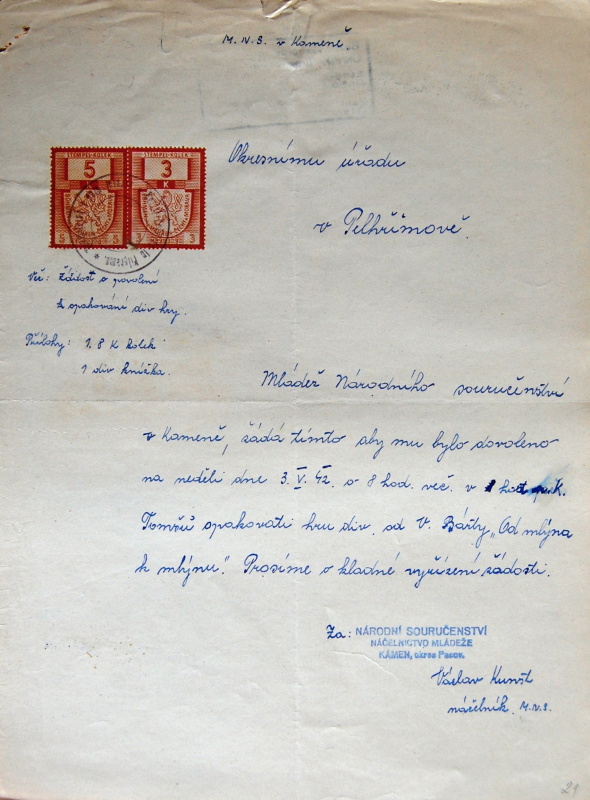 M.N.S. v Kameně.
Okresnímu úřadu
v Pelhřimově.
STEMPEL-KOLEK STEMPEL-KOLEK
5 3
K K
5 5 3 3
Věc: Žádost o povolení
k opakování div hry.
Přílohy: 1. 8 K kolek
1 div knížka.
Mládež Národního souručenství
v Kameně, žádá tímto aby mu bylo dovoleno
na neděli dne 3. V. 42. o 8 hod. več. v host. p.
Tomšů opakovati hru div. od V. Bárty „Od mlýna
k mlýnu". Prosíme o kladné vyřízení žádosti.
Za: NÁRODNÍ SOURUČENSTVÍ
NÁČELNICTVO MLÁDEŽE
KÁMEN, okres Pacov.
Václav Kunst
náčelník M.N.S.
21